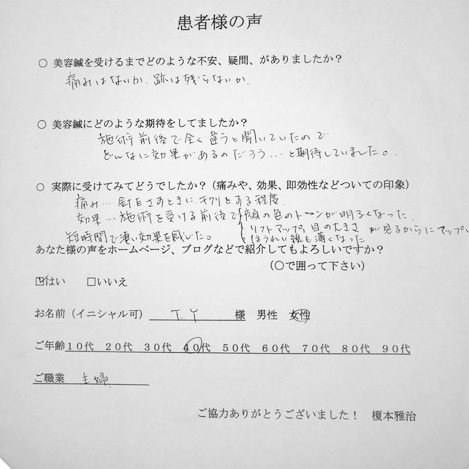 患者様の声
○ 美容鍼を受けるまでどのような不安、疑問、がありましたか？
痛みはないか、跡は残らないか。
○ 美容鍼にどのような期待をしてましたか？
施術前後で全く違うと聞いていたので
どんなに効果があるのだろう…と期待していました。
○ 実際に受けてみてどうでしたか？（痛みや、効果、即効性などついての印象）
痛み…針をさすときにチクリとする程度
効果…施術を受ける前後で顔の色のトーンが明るくなった
短時間で凄い効果を感じた。
リフトアップ。目の大きさが見るからにアップ。
ほうれい線も薄くなった
あなた様の声をホームページ、ブログなどで紹介してもよろしいですか？
（○で囲って下さい）
☑はい □いいえ
お名前（イニシャル可） T.Y 様 男性 女性
ご年齢 10代 20代 30代 40代 50代 60代 70代 80代 90代
ご職業 主婦
ご協力ありがとうございました！ 榎本雅治